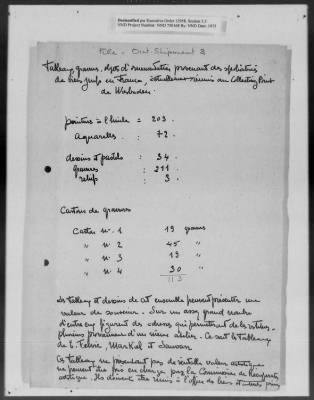 Declassified per Executive Order 12958, Section 3.5
NND Project Number: NND 750168 By: NND Date: 1975
File - Out. Shipment 8
Tableaux, gravures, objets d'ameublement provenant des spoliations
de biens juifs en France, actuellement réunis au Collecting Point
de Wiesbaden.
peintures à l'huile = 203.
aquarelles : 72
dessins et pastels : 34
gravures : 211
reliefs : 3
Cartons de gravures
Carton n. 1 19 gravures
" n. 2 45 "
" n. 3 19 "
" n. 4 30 "
113
Les tableaux et dessins de cet ensemble peuvent présenter une
valeur de souvenir. Sur un assez grand nombre
d'entre eux figurent des adresses qui permettront de les
plusieurs proviennent d'un même atelier. Ce sont les tableaux
de L. Markal et
Ces tableaux ne présentant pas de véritable valeur artistique
ne peuvent être pris en charge par la Commission de Récupération
artistique. Ils doivent être remis à l'office des biens et intérêts privés